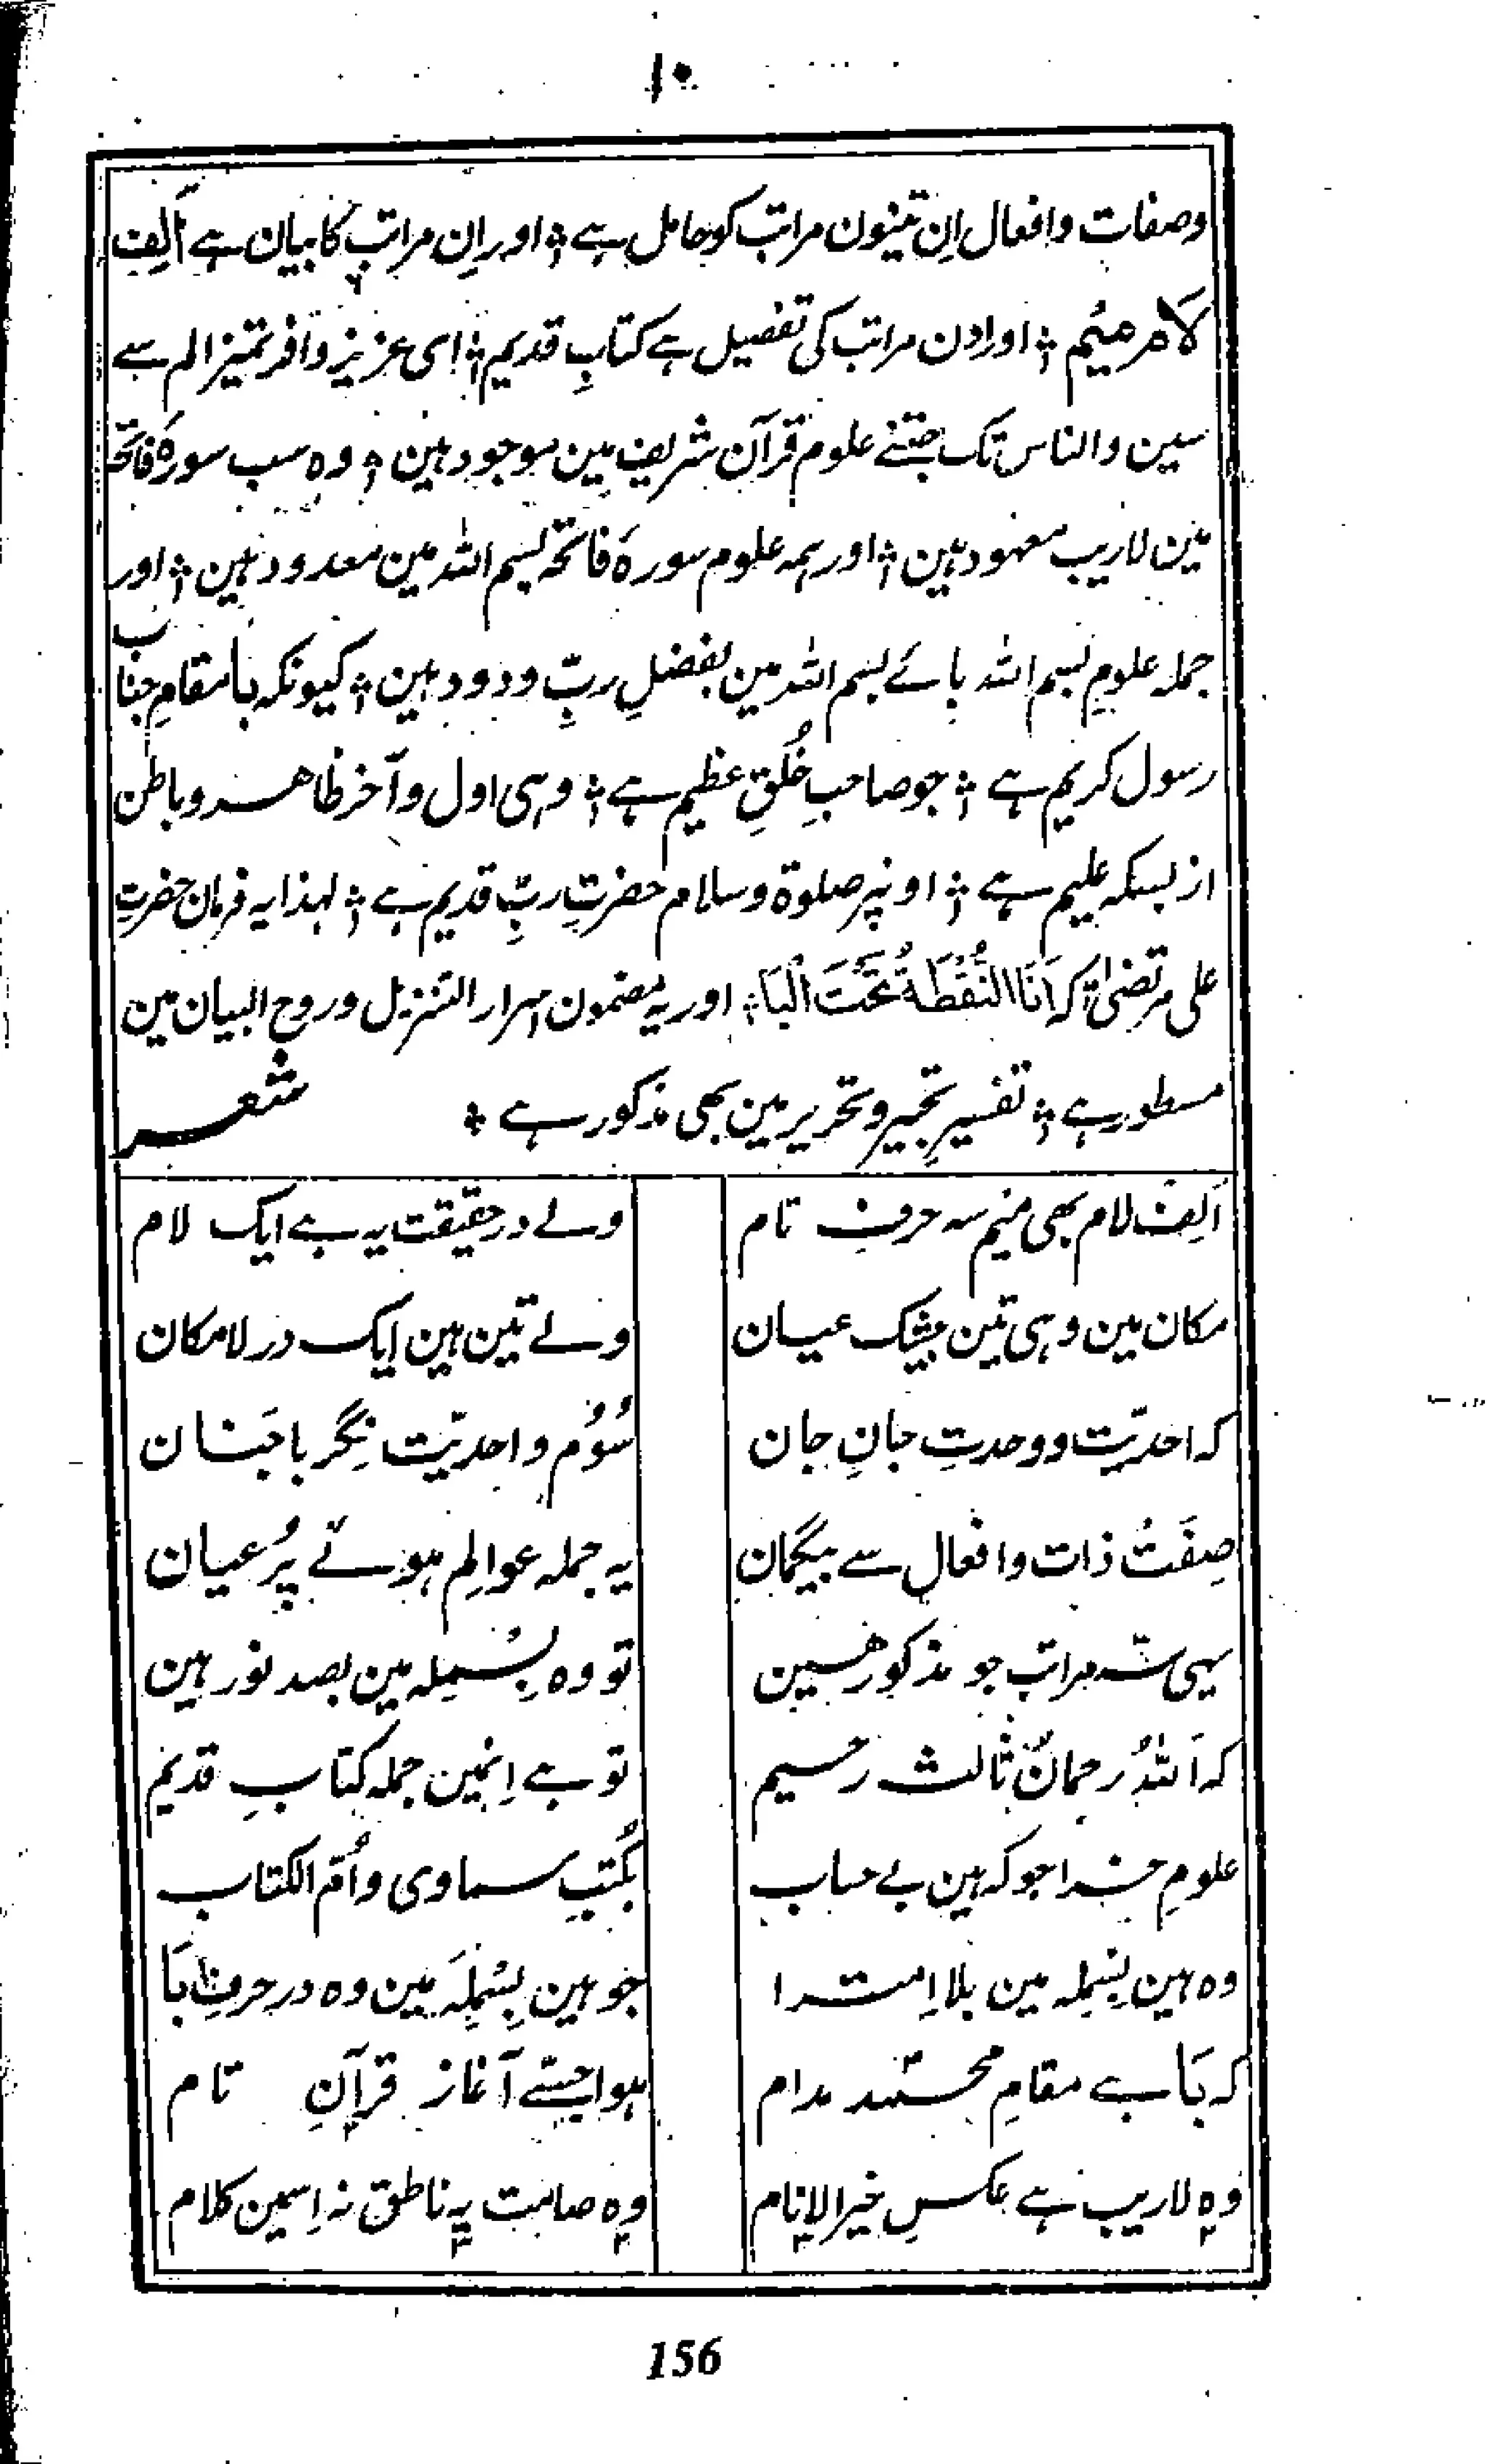 ۱۰
وصفات وافعال اِن تینون مراتب کو حامل ہے ؞ اور اِن مراتب کا بیان ہے اَلِف
لَام مِیْم ؞ اور اون مراتب کی تفصیل ہے کتابِ قدیم ؞ ای عزیز وافر تمیز الم سے
سین والناس تک جتنے علوم قرآن شریف مین موجود ہین ؞ وہ سب سورۂ فاتحہ
مین لاریب معہود ہین ؞ اور ہمہ علوم سورہ فاتحہ بسم اللہ مین معدود ہین ؞ اور
جملہ علومِ بسم اللہ بائے بسم اللہ مین بفضلِ ربِّ ودود ہین ؞ کیونکہ با مقامِ جناب
رسول کریم ہے ؞ جو صاحبِ خُلقِ عظیم ہے ؞ وہی اول وآخر ظاهر وباطن
از بسکہ علیم ہے ؞ اونپر صلوۃ وسلام حضرتِ ربِّ قدیم ہے ؞ لہذا یہ فرمان حضرتِ
علی مرتضیٰ کہ اَنَا النُّقْطَةُ تَحْتَ الْبَاء ؞ اور یہ مضمون اسرار التنزیل وروح البیان مین
مسطور ہے ؞ تفسیرِ تجیر وتحریر مین بھی مذکور ہے ؞ شعر
اَلِف لام بھی میم سہ حرف تام ولے در حقیقت یہ ہے ایک لام
مکان مین وہی تین بیشک عیان ولے تین ہین ایک در لامکان
کہ احدیّت ووحدتِ جانِ جان سُوُم واحدیّت نگر با جَنان
صِفَتُ ذات وافعال سے بیگمان یہ جملہ عوالِم ہوئے پُر عیان
یہی سہ مراتب جو مذکور ہین تو وہ بِسْمِلہ مین بصد نور ہین
کہ اَللہُ رحمانُ ثالث رحیم تو ہے اِنمین جملہ کتابِ قدیم
علومِ خدا جو کہ ہین بے حساب کُتبِ سماوی واُمّ الکتاب
وہ ہین بِسْمِلہ مین بلا اِمترا جو ہین بِسْمِلَہ مین وہ در حرفِ با
کہ بَا ہے مقامِ محمّد مدام ہوا جسّے آغاز قرآنِ تام
وہ لاریب ہے عکسِ خیر الانام وہ صامت یہ ناطق نہ اِسمین کلام
156